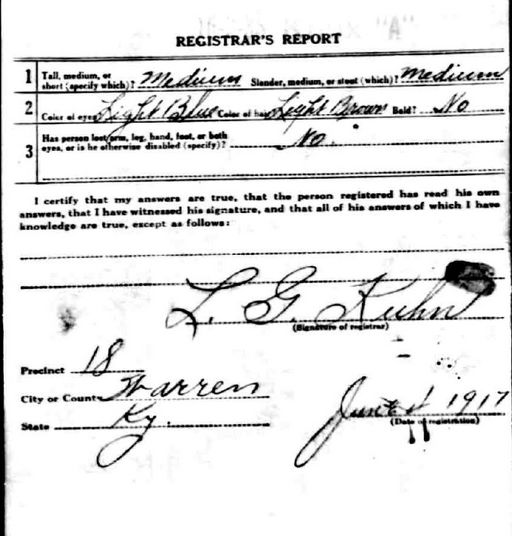 "A"
REGISTRAR'S REPORT
1 Tall, medium, or short (specify which)? Medium Slender, medium, or stout (which)? Medium
2 Color of eyes Light Blue Color of hair Light Brown Bald? No
3 Has person lost arm, leg, hand, foot, or both eyes, or is he otherwise disabled (specify)? No.
I certify that my answers are true, that the person registered has read his own
answers, that I have witnessed his signature, and that all of his answers of which I have
knowledge are true, except as follows:
L. G. Kuhn
(Signature of registrar)
Precinct 18
City or County Warren
State Ky.
June 1917
(Date of registration)